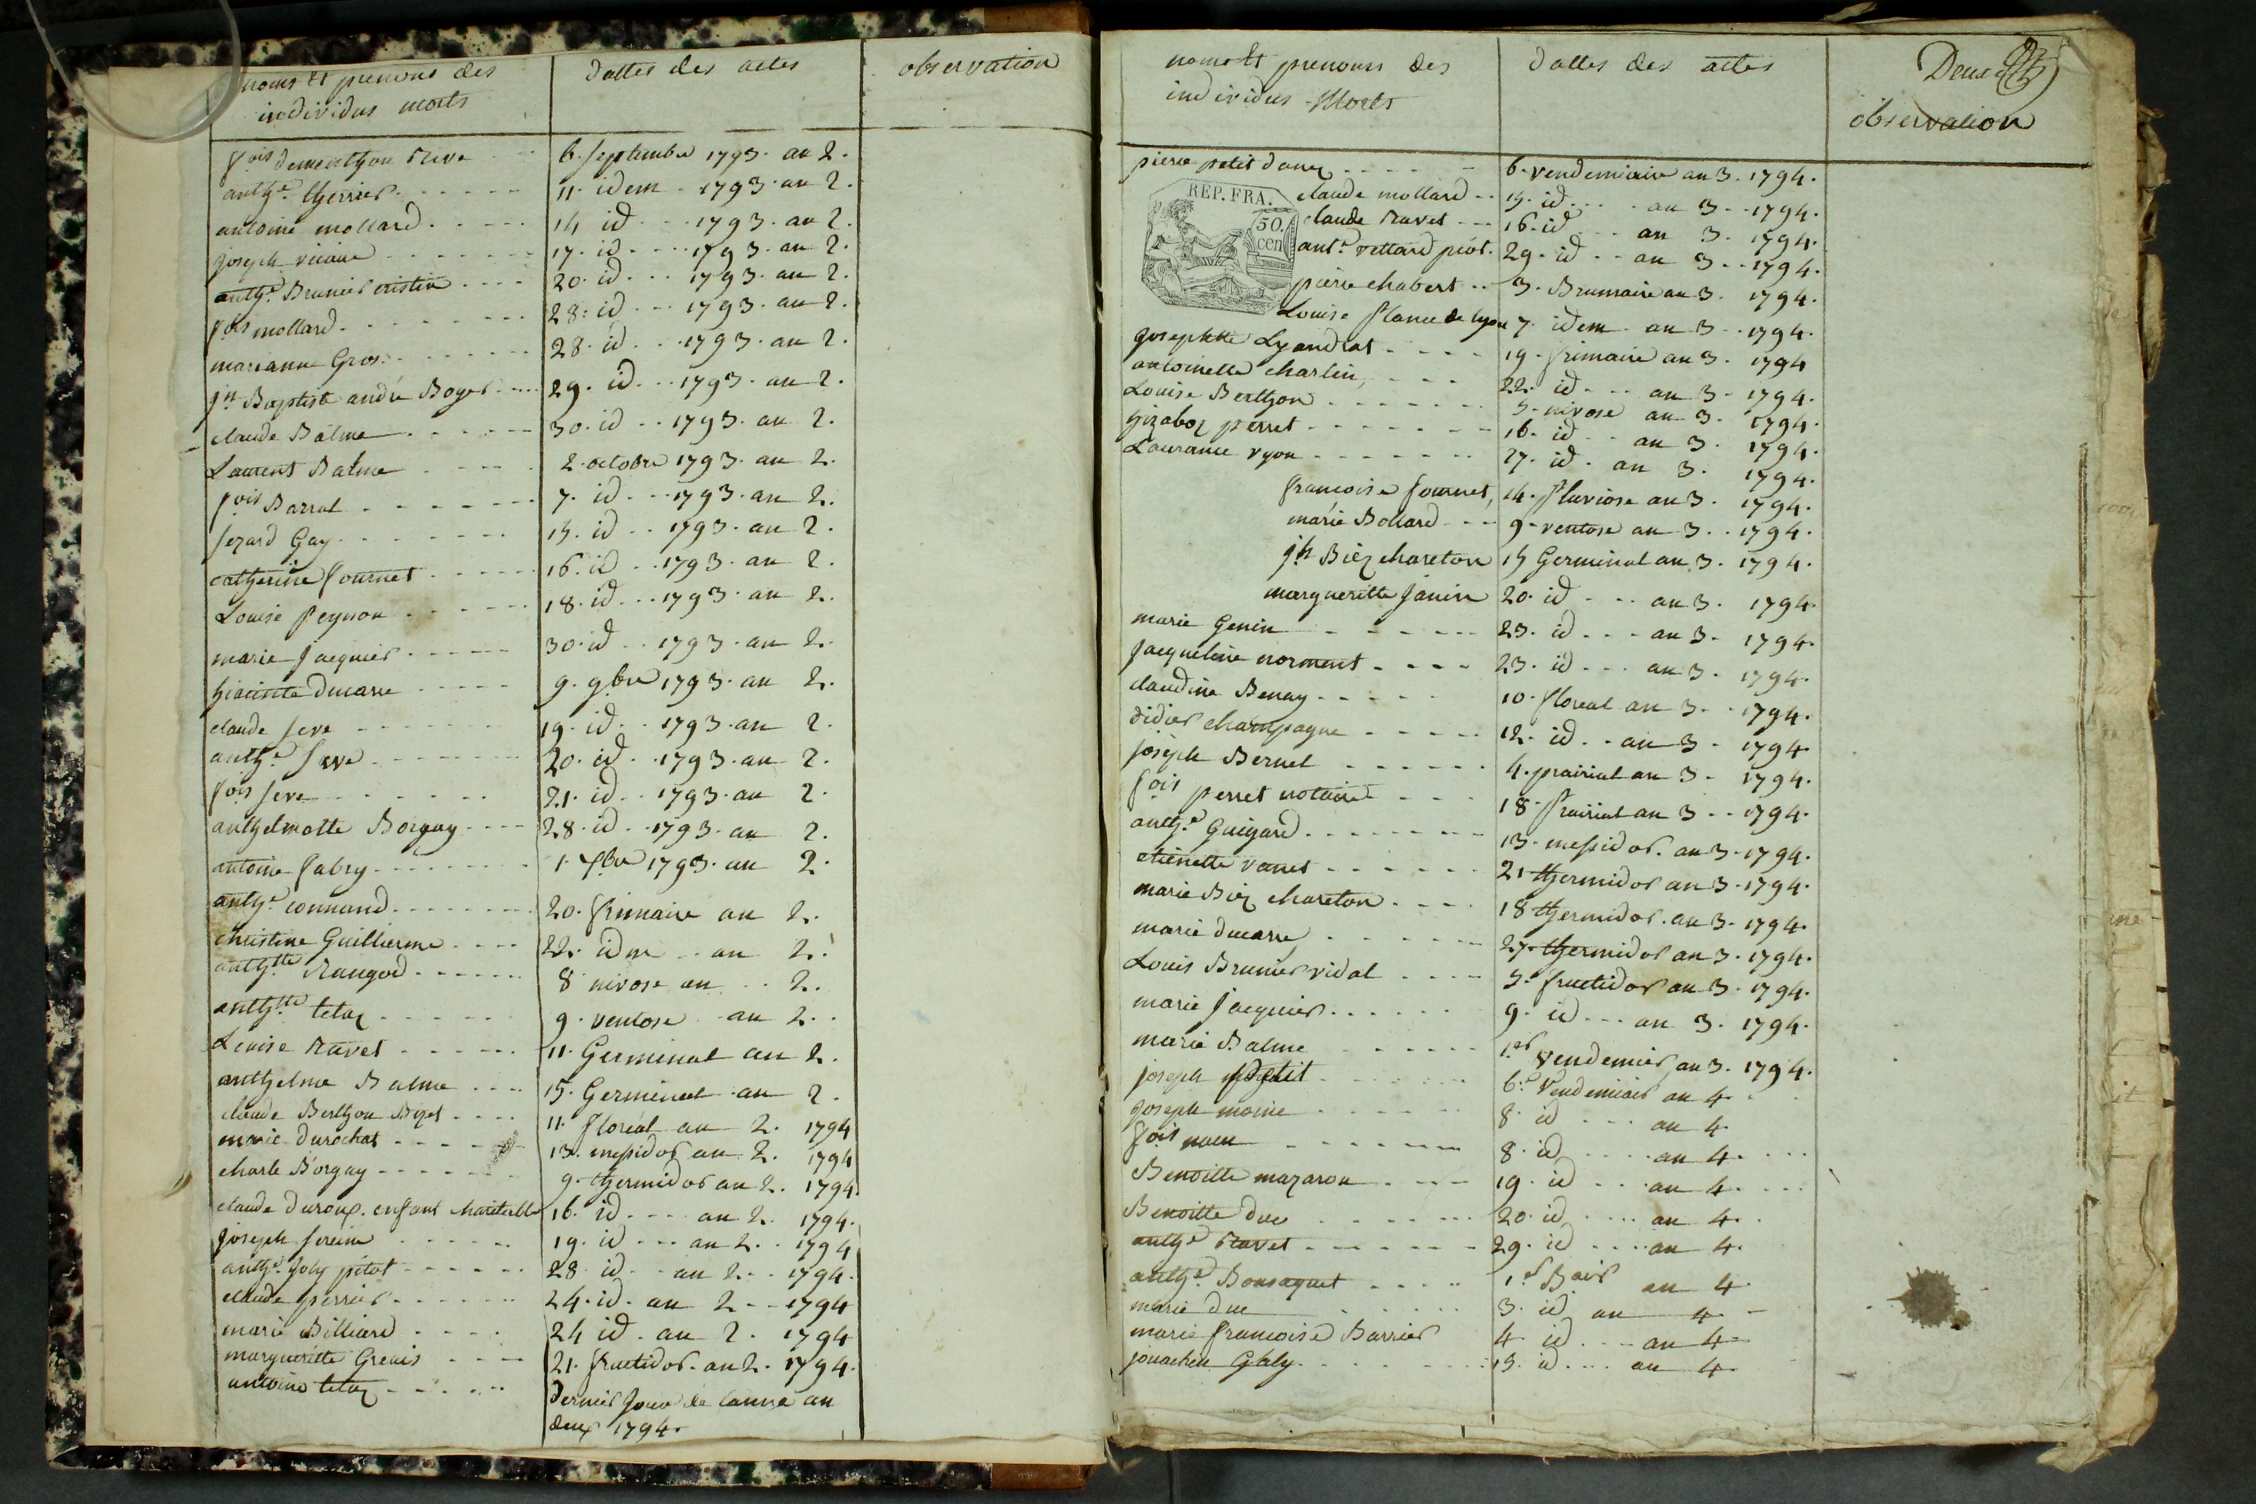 noms et prenoms des individus morts
dattes des actes
observation
fois demerthon Reve 6. septembre 1793. an 2.
anthe. therrier 11. idem 1793. an 2.
antoine mollard 14 id 1793. an 2.
joseph vicaire 17. id 1793. an 2.
anthe. Brunier cristin 20. id 1793. an 2.
fois mollard 28. id 1793. an 2.
marianne Gros 28. id 1793. an 2.
jn Baptiste andré Boyer 29. id 1793. an 2.
claude Balme 30. id 1793. an 2.
Laurent Balme 2. octobre 1793. an 2.
fois Barral 7. id 1793. an 2.
sezard Gay 15. id 1793. an 2.
catherine fournet 16. id 1793. an 2.
Louise peyson 18. id 1793. an 2.
marie jacquier 30. id 1793. an 2.
hiacinte ducarre 9. 9bre 1793. an 2.
claude seve 19. id 1793. an 2.
anthe. seve 20. id 1793. an 2.
fois seve 21. id 1793. an 2.
anthelmotte Borgay 28. id 1793. an 2.
antoine fabry 1. Xbre 1793. an 2.
anthe. connand 20. frimaire an 2.
christine Guillierme 22. idem an 2.
anthtte Rangod 8 nivose an 2.
anthtte tetaz 9. ventose an 2.
Louise Ravet 11. Germinal an 2.
anthelme Balme 15. Germinal an 2.
claude Berthon Bizet 11. floréal an 2. 1794
marie durochat 13. messidor an 2. 1794
charle Borgay 9. thermidor an 2. 1794.
claude duroux. enfant charitable 16. id an 2. 1794.
joseph sereine 19. id an 2. 1794
anthe. joly pitot 28 id an 2. 1794.
claude perrier 24. id. an 2 1794
marie Billiard 24 id. an 2. 1794
margueritte Grenis 21. fructidor. an 2. 1794.
antoine tetaz Dernier jour de l'anné an
deux 1794.
noms et prenoms des individus morts
dattes des actes
Deux
observation
pierre petit danq 6. vendemiaire an 3. 1794.
REP. FRA.
50.
cen
claude mollard 15. id an 3 1794.
claude Ravet 16. id an 3. 1794.
ante vettard piot. 29. id an 3 1794.
pierre chabert 3. Brumaire an 3. 1794.
Louise flanee de lyon 7. idem an 3 1794.
josephtte Lyandrat 19. frimaire an 3. 1794
antoinette charlin 22. id an 3 1794.
Louise Berthon 5. nivose an 3. 1794.
hizaboz perret 16. id an 3. 1794.
Laurance vyon 27. id. an 3. 1794.
francoise fournet, 14. pluviose an 3. 1794.
marie Bollard 9. ventose an 3. 1794.
jh Biéz chareton 15 Germinal an 3. 1794.
margueritte janin 20. id an 3. 1794.
marie Genin 23. id an 3. 1794.
jacqueline norment 23. id an 3. 1794.
claudine Benay 10. floreal an 3. 1794.
didier champagne 12. id an 3. 1794.
joséph Bernet 4. prairial an 3. 1794.
fois perret notaire 18. prairial an 3 1794.
anthe. Guigard 13. messidor. an 3. 1794.
etiénette vanet 21 thermidor an 3. 1794.
marie Biéz chareton 18 thermidor. an 3. 1794.
marie ducarre 27. thermidor an 3. 1794.
Louis Brunier vidal 5. fructidor an 3. 1794.
marie jacquier 9. id an 3. 1794.
marie Balme 1er vendemier, an 3. 1794.
joseph petit 6.e Vendemiair an 4
joseph moine 8. id an 4.
fois 8. id an 4.
Benoitte mazaron 19. id an 4.
Benoitte duc 20. id an 4.
anthe. Ravet 29. id an 4.
anthe. Bonsaquet 1er Bair an 4.
marie duc 3. id an 4
marie francoise Barrier 4 id an 4
jouachin Galy 15. id an 4.